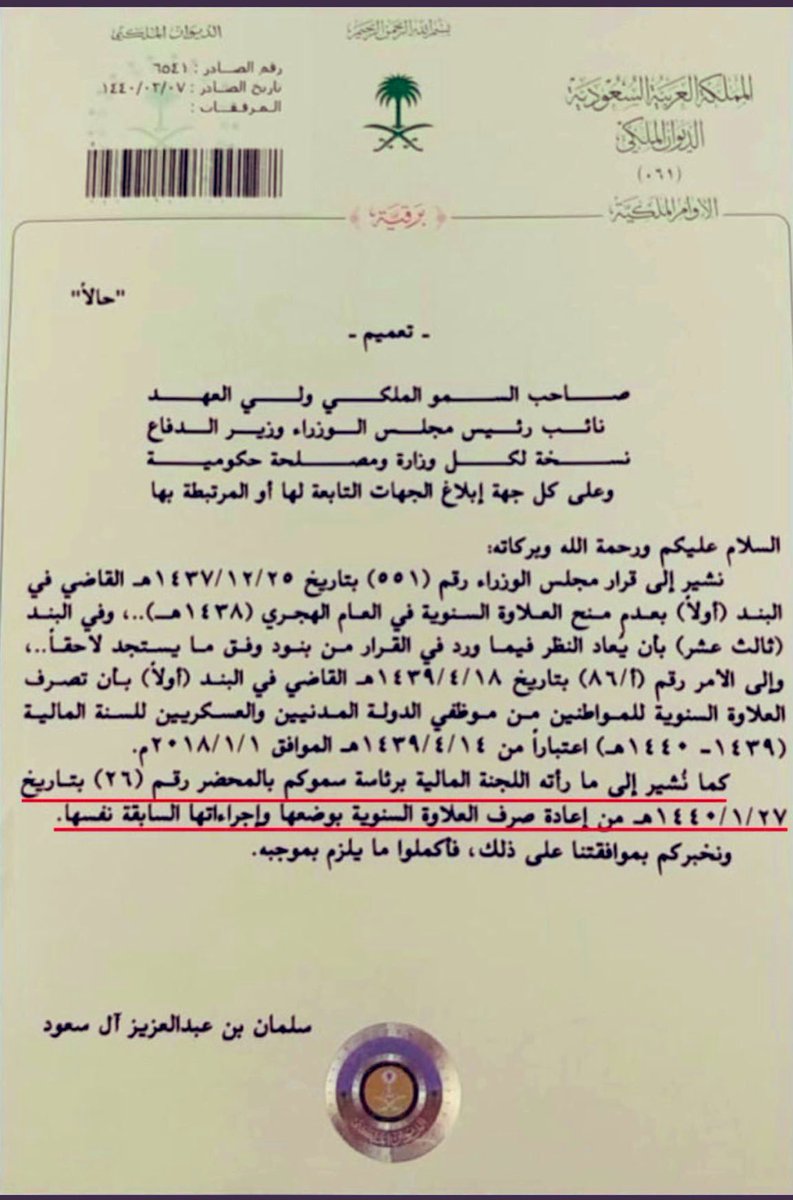 بسم الله الرحمن الرحيم
المملكة العربية السعودية
الديوان الملكي
(٠٦١)
الأوامر الملكية
الديوان الملكي
رقم الصادر : ٦٥٤١
تاريخ الصادر : ١٤٤٠/٠٢/٠٧
المرفقات :
برقية
"حالاً"
- تعميم -
صاحب السمو الملكي ولي العهد
نائب رئيس مجلس الوزراء وزير الدفاع
نسخة لكل وزارة ومصلحة حكومية
وعلى كل جهة إبلاغ الجهات التابعة لها أو المرتبطة بها
السلام عليكم ورحمة الله وبركاته:
نشير إلى قرار مجلس الوزراء رقم (٥٥١) بتاريخ ١٤٣٧/١٢/٢٥هـ القاضي في
البند (أولاً) بعدم منح العلاوة السنوية في العام الهجري (١٤٣٨هـ)..، وفي البند
(ثالث عشر) بأن يُعاد النظر فيما ورد في القرار من بنود وفق ما يستجد لاحقاً..،
وإلى الامر رقم (أ/٨٦) بتاريخ ١٤٣٩/٤/١٨هـ القاضي في البند (أولاً) بأن تصرف
العلاوة السنوية للمواطنين من موظفي الدولة المدنيين والعسكريين للسنة المالية
(١٤٣٩- ١٤٤٠هـ) اعتباراً من ١٤٣٩/٤/١٤هـ الموافق ٢٠١٨/١/١م.
كما نُشير إلى ما رأته اللجنة المالية برئاسة سموكم بالمحضر رقم (٢٦) بتاريخ
١٤٤٠/١/٢٧هـ من إعادة صرف العلاوة السنوية بوضعها وإجراءاتها السابقة نفسها.
ونخبركم بموافقتنا على ذلك، فأكملوا ما يلزم بموجبه.
سلمان بن عبدالعزيز آل سعود